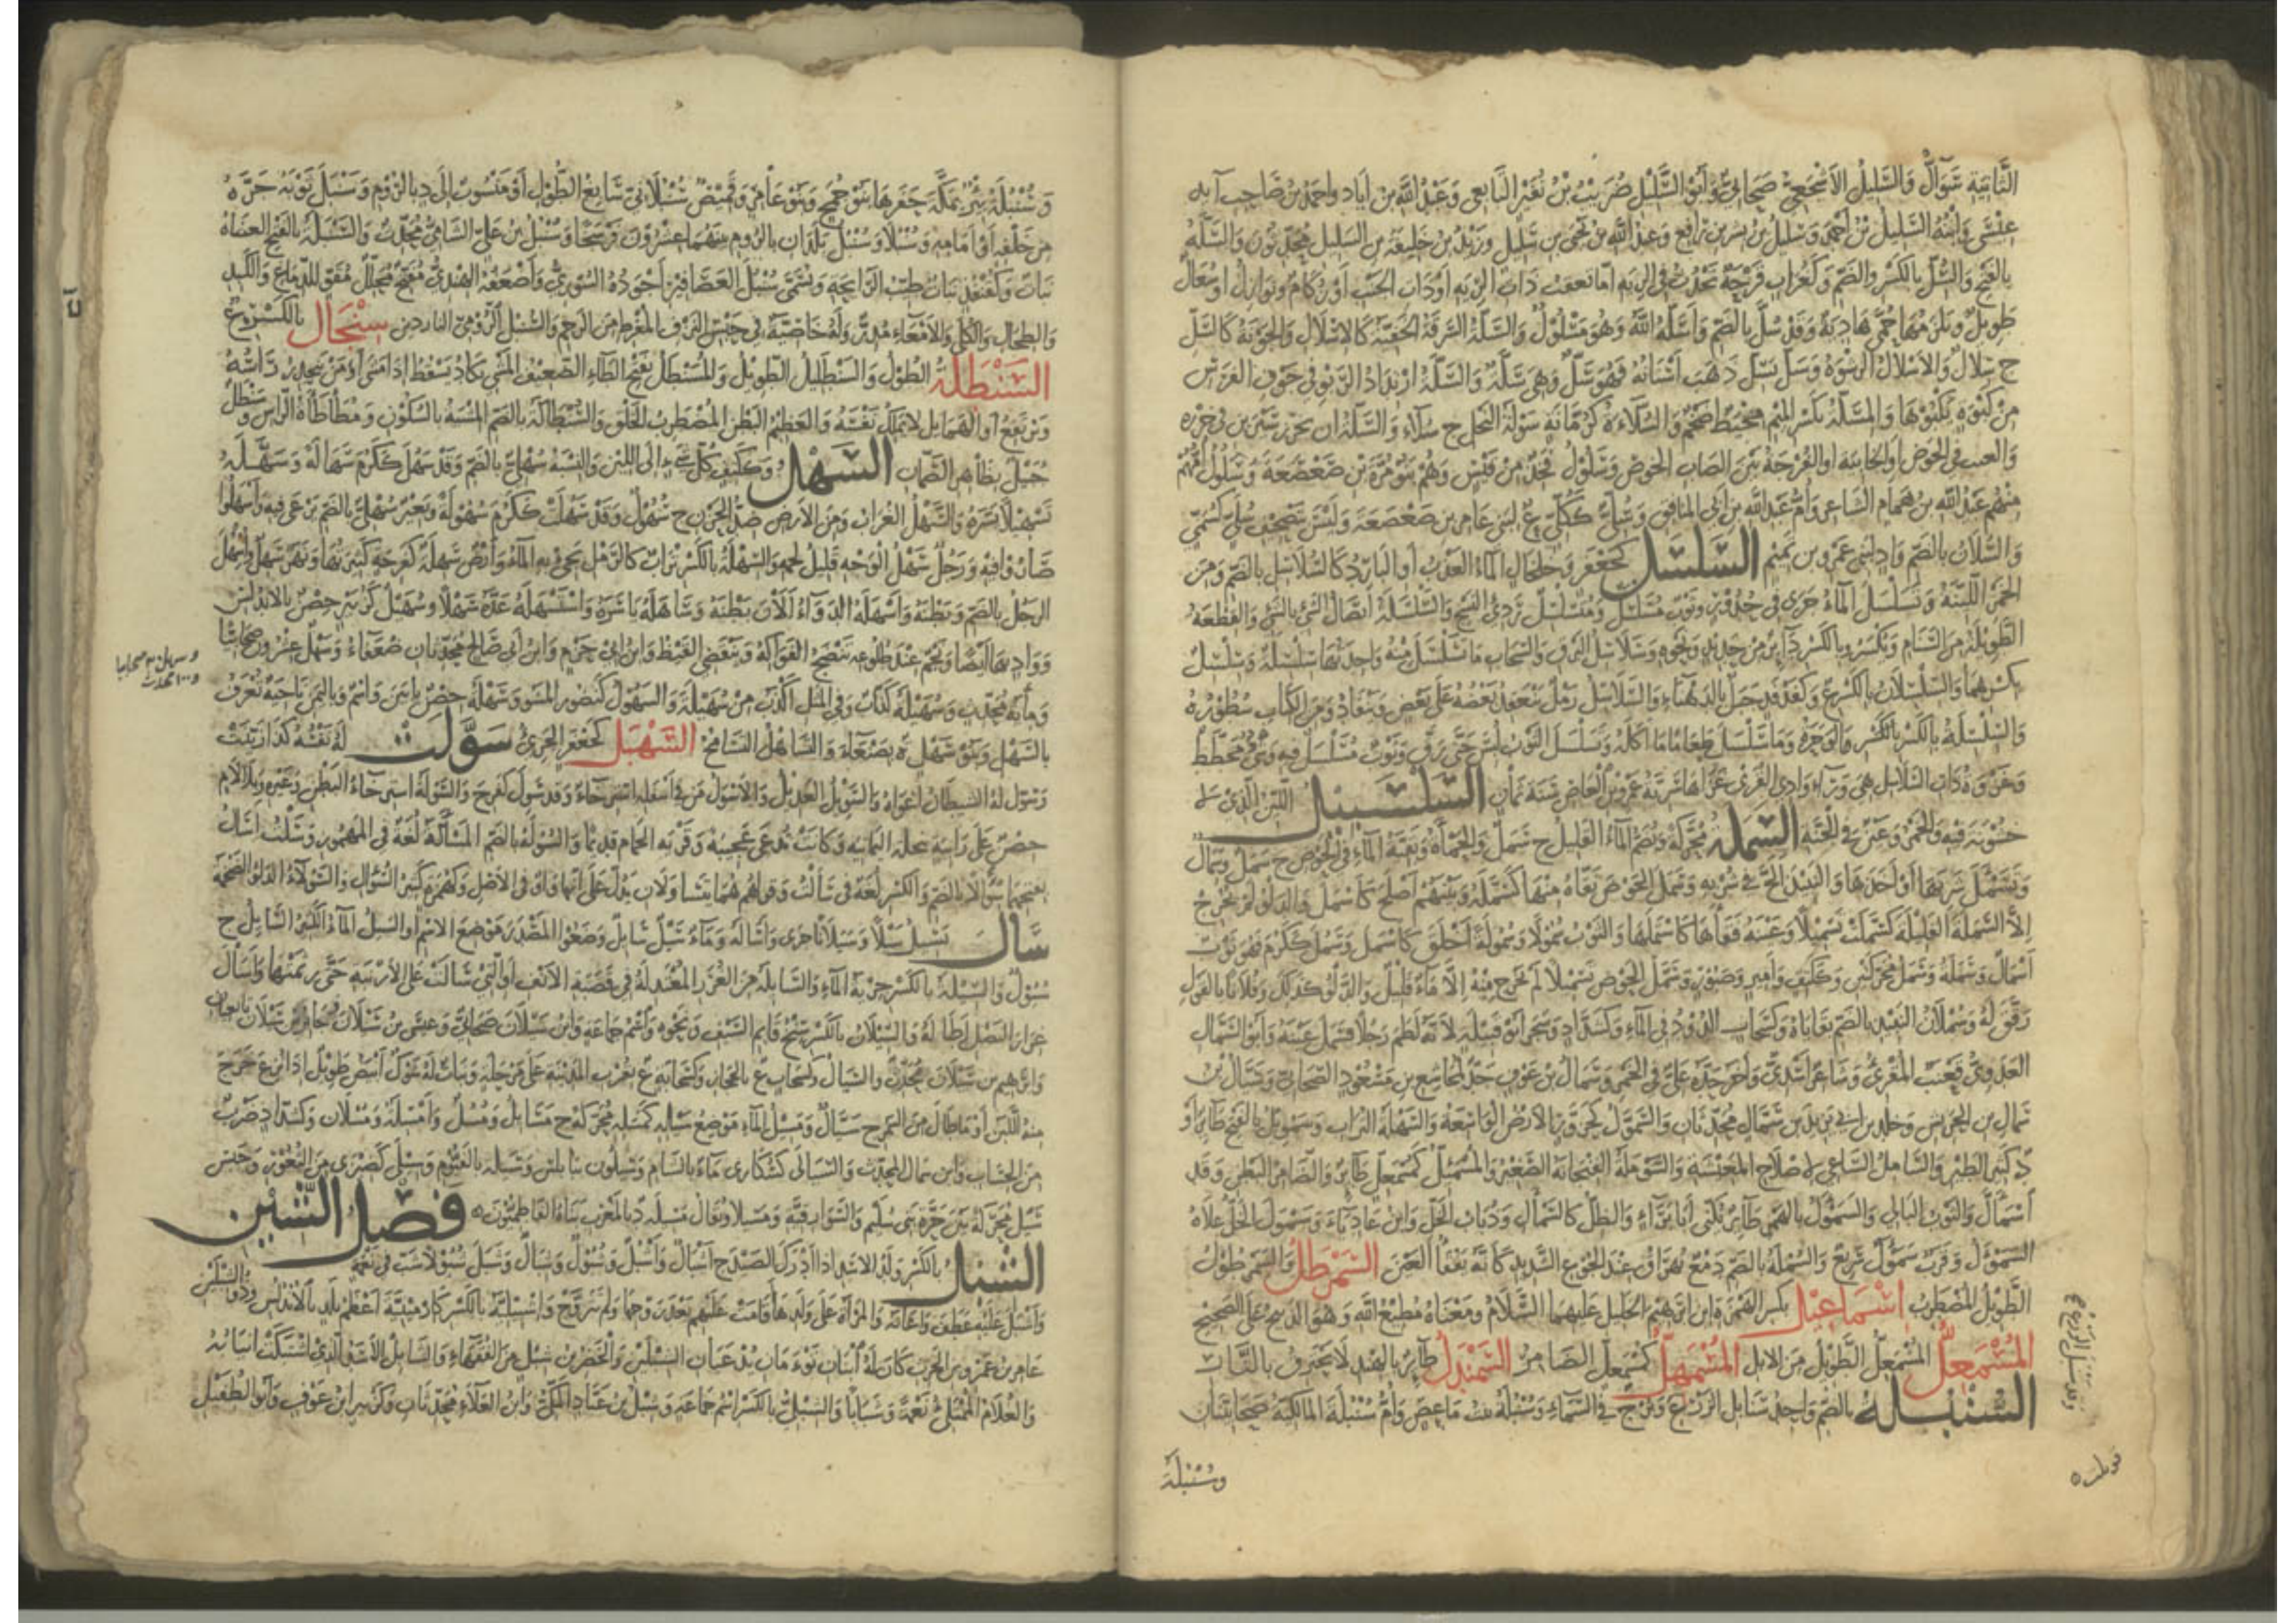 الثانية شوال والسليل الأشجعي صحابي وأبو السليل ضريب بن نقير التابعي وعبد الله بن اياد واحمد بن صاحب آبه
عنسي وابنه السليل بن أحمر وسليل بن بشر بن رافع وعبد الله بن يحيى بن سليل وزيد بن خليفة بن السليل محدثون والسلة
بالفتح والسل بالكسر والضم وكغراب قرحة تحدث في الرية اما تعقب ذات الرية او ذات الجنب أو زكام ونوازل او سعال
طويل ويلزمها حمى هادية وقد سل بالضم وأسله الله وهو مسلول والسلة السرقة الخفية كالاسلال والجونة كالسل
ج سلال والاسلال الرشوة وسل يسل ذهب أسنانه فهو سل وهي سلة والسلة ارتداد الربو في جوف الفرس
من كبوة يكبوها والمسلة بكسر الميم مخيط ضخم والسلاءة كرمانة شوكة النخل ج سلاء والسلة ان يخرز سيرين في خرزة
والعيب في الحوض او الخابية او الفرجة بين انصاب الحوض وسلول فخذ من قيس وهم بنو مرة بن صعصعة وسلول أمهم
منهم عبد الله بن همام الشاعر وأم عبد الله بن أبي المنافق وسلي ككلي ع لبني عامر بن صعصعة وليس بتصحيف سلي كسمي
والسلان بالضم واد لبني عمرو بن تميم السلسل كجعفر وخلخال الماء العذب أو البارد كالسلاسل بالضم ومن
الخمر اللينة وتسلسل الماء جرى في حدور وثوب مسلسل ومتسلسل رديء النسج والسلسلة اتصال الشيء بالشيء والقطعة
الطويلة من السنام ويكسر وبالكسر دائر من حديد ونحوه وسلاسل البرق والسحاب ما تسلسل منه واحدتها سلسلة وسلسل
بكسرهما والسلسلان بالكسر ع وكفدفد جبل بالدهناء والسلاسل رمل ينعقد بعضه على بعض وينقاد ومن الكتاب سطوره
والسلسلة بالكسر الوحرة وما تسلسل طعاما ما أكله وتسلسل الثوب لبس حتى رق وثوب مسلسل فيه وشي مخطط
وغزوة ذات السلاسل هي وراء وادي القرى غزاها سرية عمرو بن العاص سنة ثمان السلسبيل اللين الذي لا
خشونة فيه والخمر وعين في الجنة السملة محركة وتضم الماء القليل ج سمل والحمأة وبقية الماء في الحوض ج سمل وسمال
وتسمل شربها أو أخذها والنبيذ الح في شربه وسمل الحوض نقاه منها كسمله وبينهم أصلح كأسمل والدلو لم تخرج
إلا السملة القليلة كسملت تسميلا وعينه فقأها كاستملها والثوب سمولا وسمولة أخلق كأسمل وسمل ككرم فهو ثوب
أسمال وسملة وسمل محركتين وككتف وأمير وصبور وسمل الحوض تسميلا لم يخرج منه إلا ماء قليل والدلو كذلك وفلانا بالقول
رقق له وسملان النبيذ بالضم بقاياه وكسحاب الدود في الماء وكشداد وشجر ابو قبيلة لانه لطم رجلا فسمل عينه وأبو السمال
العدوي قعنب المقرئ وشاعر أسدي وآخر جده علي في الخمر وسمال بن عوف جد لمجاشع بن مسعود الصحابي وسمال بن
اسمأل والثوب البالي والسموأل بالهمز طائر يكنى أبا براء والظل كالسمأل وذباب الخل وابن عادياء وسموأل الخل علاه
السموأل وقرب سموأل سريع والسملة بالضم دمع يهراق عند الجوع الشديد كأنه يفقأ العين السمرطل والسمرطول
الطويل المضطرب اسماعيل بكسر الهمزة ابن ابرهيم الخليل عليهما السلام ومعناه مطيع الله وهو الذبيح على الصحيح
المسمعل المسمعل الطويل من الابل المسمهل كمسمعل الضامر السمندل طائر بالهند لا يحترق بالنار
السنبلة بالضم واحدة سنابل الزرع وبرج في السماء وسنبلة بنت ماعص وأم سنبلة المالكية صحابيتان
وسنبلة
وسنبلة بئر بمكة حفرها بنو جمح وبنو عامر وقميص سنبلاني سابغ الطول أو منسوب إلى د بالروم وسنبل ثوبه جره
من خلفه أو امامه وسنبلا وسنبل بلدان بالروم بينهما عشرون فرسخا وسنبل بن علي الشامي محدث والسنبلة بالفتح العضاه
نبات وكقنفذ نبات طيب الرايحة ويسمى سنبل العصافير أجوده السوري وأضعفه الهندي مفتح محلل مقو للدماغ والكبد
والطحال والكلى والامعاء مدر وله خاصية في حبس النزف المفرط من الرحم والسنبل الرومي الناردين سنجال بالكسر ع
السنطلة الطول والسنطليل الطويل والمسنطل بفتح الطاء الضعيف المشي يكاد يسقط اذا مشى أو من يحدر رأسه
ويرتفع او المتمايل لا يملك نفسه والعظيم البطن المضطرب الخلق والسنطالة بالضم المشية بالسكون ومطأطأة الراس وسنطل
جبل بظاهر الضمان السهل وككتف كل شيء إلى اللين والنسبة سهلي بالضم وقد سهل ككرم سهالة وسهله
تسهيلا يسره والسهل الغراب ومن الأرض ضد الحزن ج سهول وقد سهلت ككرم سهولة وبعير سهلي بالضم يرعى فيه وأسهلوا
صاروا فيه ورجل سهل الوجه قليل لحمه والسهلة بالكسر تراب كالرمل يجيء به الماء وأرض سهلة كفرحة كثيرتها ونهر سهل واسهل
الرجل بالضم وبطنه وأسهله الدواء ألان بطنه وساهله ياسره واستسهله عده سهلا وسهيل كزبير حصن بالاندلس
وواد بها أيضا ونجم عند طلوعه تنضج الفواكه وينقضي القيظ وابن ابي حزم وابن أبي صالح محدثان ضعفاء وسهل عشرون صحابيا
وماية محدث وسهيلة كذاب وفي المثل اكذب من سهيلة والسهول كصبور المشو وسهلة حصن بابين واسم وباليمن ناحية تعرف
بالسهل وبنو سهل ة بصنعاء والساهل السائح السهبل كجعفر الجريء سولت له نفسه كذا زينت
وسول له الشيطان أغواه والسويل العديل والاسول من في أسفله استرخاء وقد سول كفرح والسولة استرخاء البطن وغيره وبلا لام
حصن على رابية بنخلة اليمانية وكانت تدعى عجيبة وقرية الحمام قديما والسولة بالضم المسألة لغة في المهموز وسلت اسأل
سال يسيل سيلا وسيلانا جرى وأساله وماء سيل سائل وضعوا المصدر موضع الاسم أو السيل الماء الكثير السايل ج
سيول والسيلة بالكسر جرية الماء والسايلة من الغرر المعتدلة في قصبة الانف أو التي سالت على الأرنبة حتى رثمتها وأسال
غرار النصل أطاله والسيلان بالكسر سنخ قايم السيف ونحوه واسم جماعة وابن سيلان صحابي وعيسى بن سيلان وجابر بن سيلان تابعيان
وابرهيم بن سيلان محدث والسيال كسحاب ع بالحجاز وكسحابة ع بقرب المدينة على مرحلة ونبات له شوك أبيض طويل اذا نزع خرج
منه اللبن أو ما طال من السمر ج سيال ومسيل الماء موضع سيله كمسله محركة ج مسايل ومسل وأمسلة ومسلان وكشداد ضرب
من الحساب وابن سمال المحدث والسيالى كسكارى ماء بالشام وسيلون ة بنابلس وسيلة بالفيوم وسيلى كضيزى من الثغور وحبس
سيل محركة بين حرة بني سليم والسوارقية ومسيلا ويقال مسيلة د بالمغرب بناه الفاطميون فصل الشين
الشبل بالكسر ولد الاسد اذا أدرك الصيد ج أشبال وأشبل وشبول وشبال وشبل شبولا شب في نعمة
وأشبل عليه عطف واعانه والمرأة على ولدها قامت عليهم بعد زوجها ولم تتزوج واشبيلية بالكسر كارمينية أعظم بلد بالاندلس وذو الشبلين
عامر بن عمرو بن الحرث كان له ابنان توءمان يدعيان الشبلين والخضر بن شبل من الفقهاء والشابل الأسد الذي اشتبكت أنيابه
والغلام الممتلئ نعمة وشبابا والشبل بالكسر اسم جماعة وشبل بن عباد المكي وابن العلاء محدثان وكزبير ابن عوف وأبو الطفيل